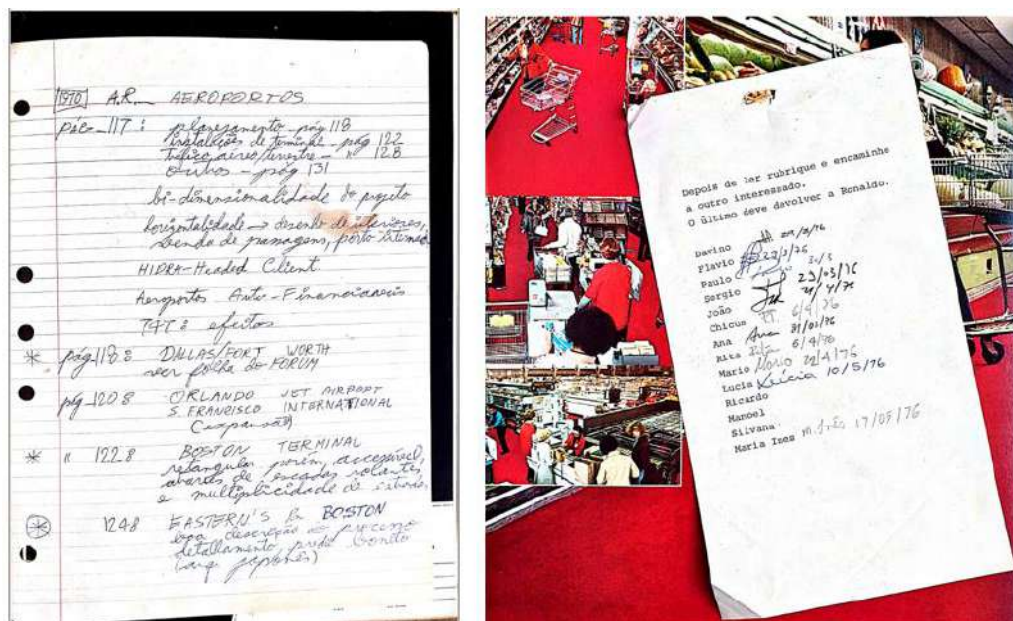 1970 A.R. AEROPORTOS
pág_117: planejamento - pág 118
instalações de terminal - pág 122
tráfico aéreo/terrestre - " 128
outros - pág 131
bi-dimensionalidade do projeto
horizontalidade → desenho de interiores,
venda de passagens, porto
HIDRA-Headed Client
Aeroportos Auto-Financiaveis
747: efeitos
* pág 118: DALLAS/FORT WORTH
ver folha do FORUM
pág_120: ORLANDO JET AIRPORT
S. FRANCISCO INTERNATIONAL
* " 122: BOSTON TERMINAL
retangular porém, accessível,
através de escadas rolantes,
e multiplicidade de
* 124: EASTERN'S BOSTON
boa descrição do processo
detalhamento, predio bonito
(arq japonês)
Depois de ler rubrique e encaminhe
a outro interessado.
O último deve devolver a Ronaldo.
Davino
Flavio 23/3/76
Paulo 31/3
Sergio 29/03/76
João
Chicus 6/4/76
Ana Ana 31/03/76
Rita Rita 6/4/76
Mario Mario 22/4/76
Lucia Lúcia 10/5/76
Ricardo
Manoel
Silvana
Maria Ines M. Inês 17/05/76